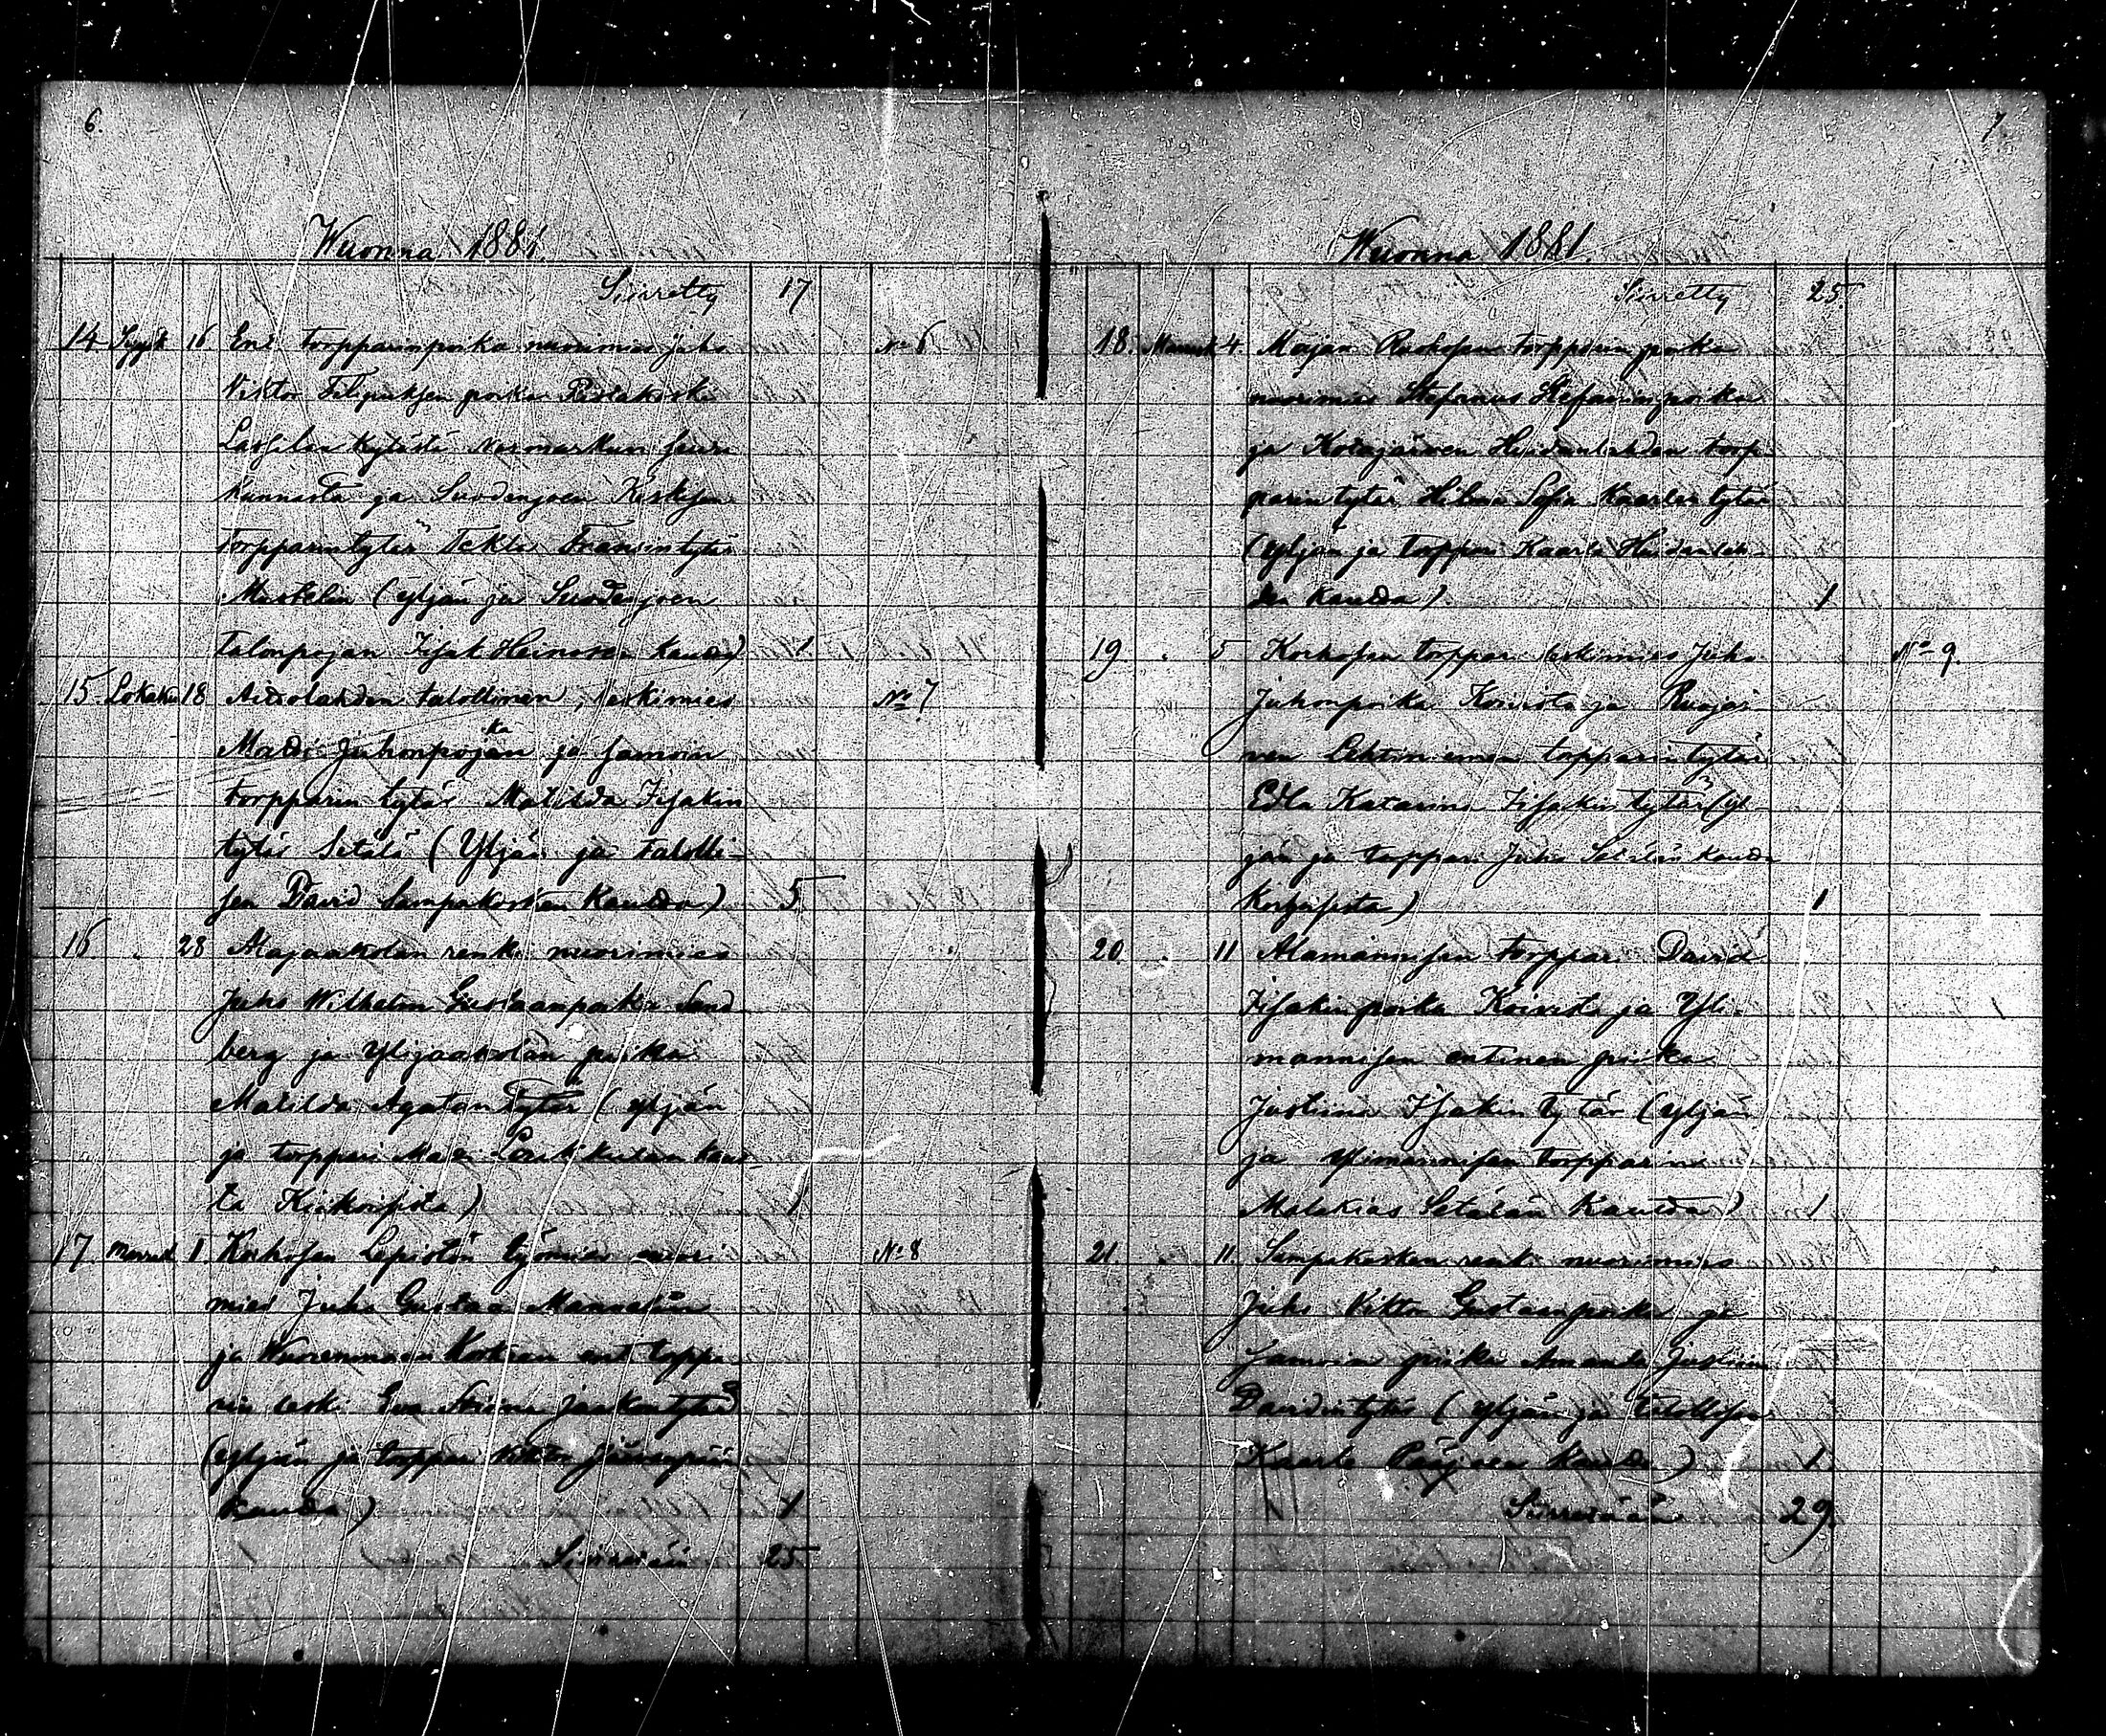 6.
Wuonna 1881.
Siirretty 17
14. Syysk 16 Ent torpparinpoika nuorimies Juho No 6.
Viktor Filipuksen poika Ristakoski
Lassilan kylästä Normarkun seura
kunnasta ja Suodenjoen Keskisen
torpparintytär Tekla Fransintytär
(Yljän ja Suodenjoen
talonpojan Iisak Heinosen kautta) 1
15. Lokaku 18 talollinen, leskimies No 7
Matti Juhonpojan ka ja samoin
torpparin tytär Matilda Iisakin
tytär Setälä (Yljän ja talolli-
sen David Sampakosken kautta) 5
16 " 28 Alajaakolan renki nuorimies
Juho Wilhelm Gustaanpoika Sand
berg ja Ylijaakolan piika
Matilda Agatan tytär (yljän
ja torppari Matti kaut-
ta Kiikoisista) 1
17. Marrask 1. Korhosen Lepistön työmies nuori No 8
mies Juho Gustaa Mannelin
ja ent torppa
rin leski Eva Stiina Jaakontytär
(yljän ja torppari Viktor Järvenpään
kautta) 1
Siirretään 25.
7.
Wuonna 1881.
Siirretty 25.
18. Marrask 4. Majan torpparin poika
nuorimies Stefanus Stefaninpoika
ja Kotajärven Hiidenlahden torp-
parin tytär Hilma Sofia Kaarlen tytär
(yljän ja torppari Kaarle Hiidenlah-
den kautta). 1
19. " 5 Korhosen torppari leskimies Juho No 9.
Juhonpoika Koivisto ja Ruojär-
ven Lehtiniemen torpparintytär
Edla Katarina Iisakin tytär (yl-
jän ja torppari Juho Setälän kautta
1
20. " 11 Alamannisen torppari David
Iisakinpoika Koivisto ja Yli-
mannisen entinen piika
Justiina Iisakin tytär (yljän
ja Ylimannisen torpparin
Malakias Setälän kautta) 1
21. " 11. Sampakosken renki nuorimies
Juho Viktor Gustaanpoika ja
samoin piika Amanda Justiina
Davidintytär (yljän ja talollisen
Kaarle Pääjoen kautta) 1
Siirretään 29.